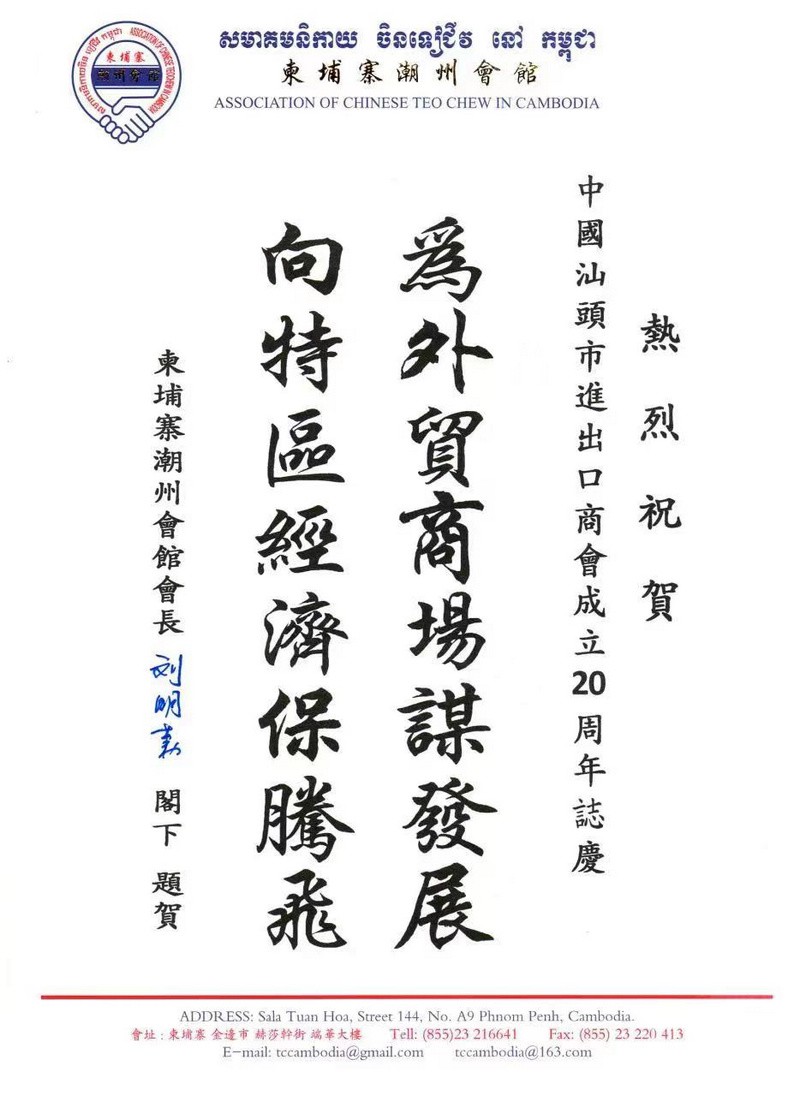 សមាគមនិកាយ ចិនទៀជីវ នៅ កម្ពុជា
柬埔寨潮州會館
ASSOCIATION OF CHINESE TEO CHEW IN CAMBODIA
柬埔寨
潮州會館
ASSOCIATION OF CHINESE TEO CHEW IN CAMBODIA
熱烈祝賀
中國汕頭市進出口商會成立20周年誌慶
爲外貿商場謀發展
向特區經濟保騰飛
柬埔寨潮州會館會長 刘明勤 閣下 題賀
ADDRESS: Sala Tuan Hoa, Street 144, No. A9 Phnom Penh, Cambodia.
會址：柬埔寨 金邊市 赫莎幹街 端華大樓 Tell: (855)23 216641 Fax: (855) 23 220 413
E-mail: tccambodia@gmail.com tccambodia@163.com